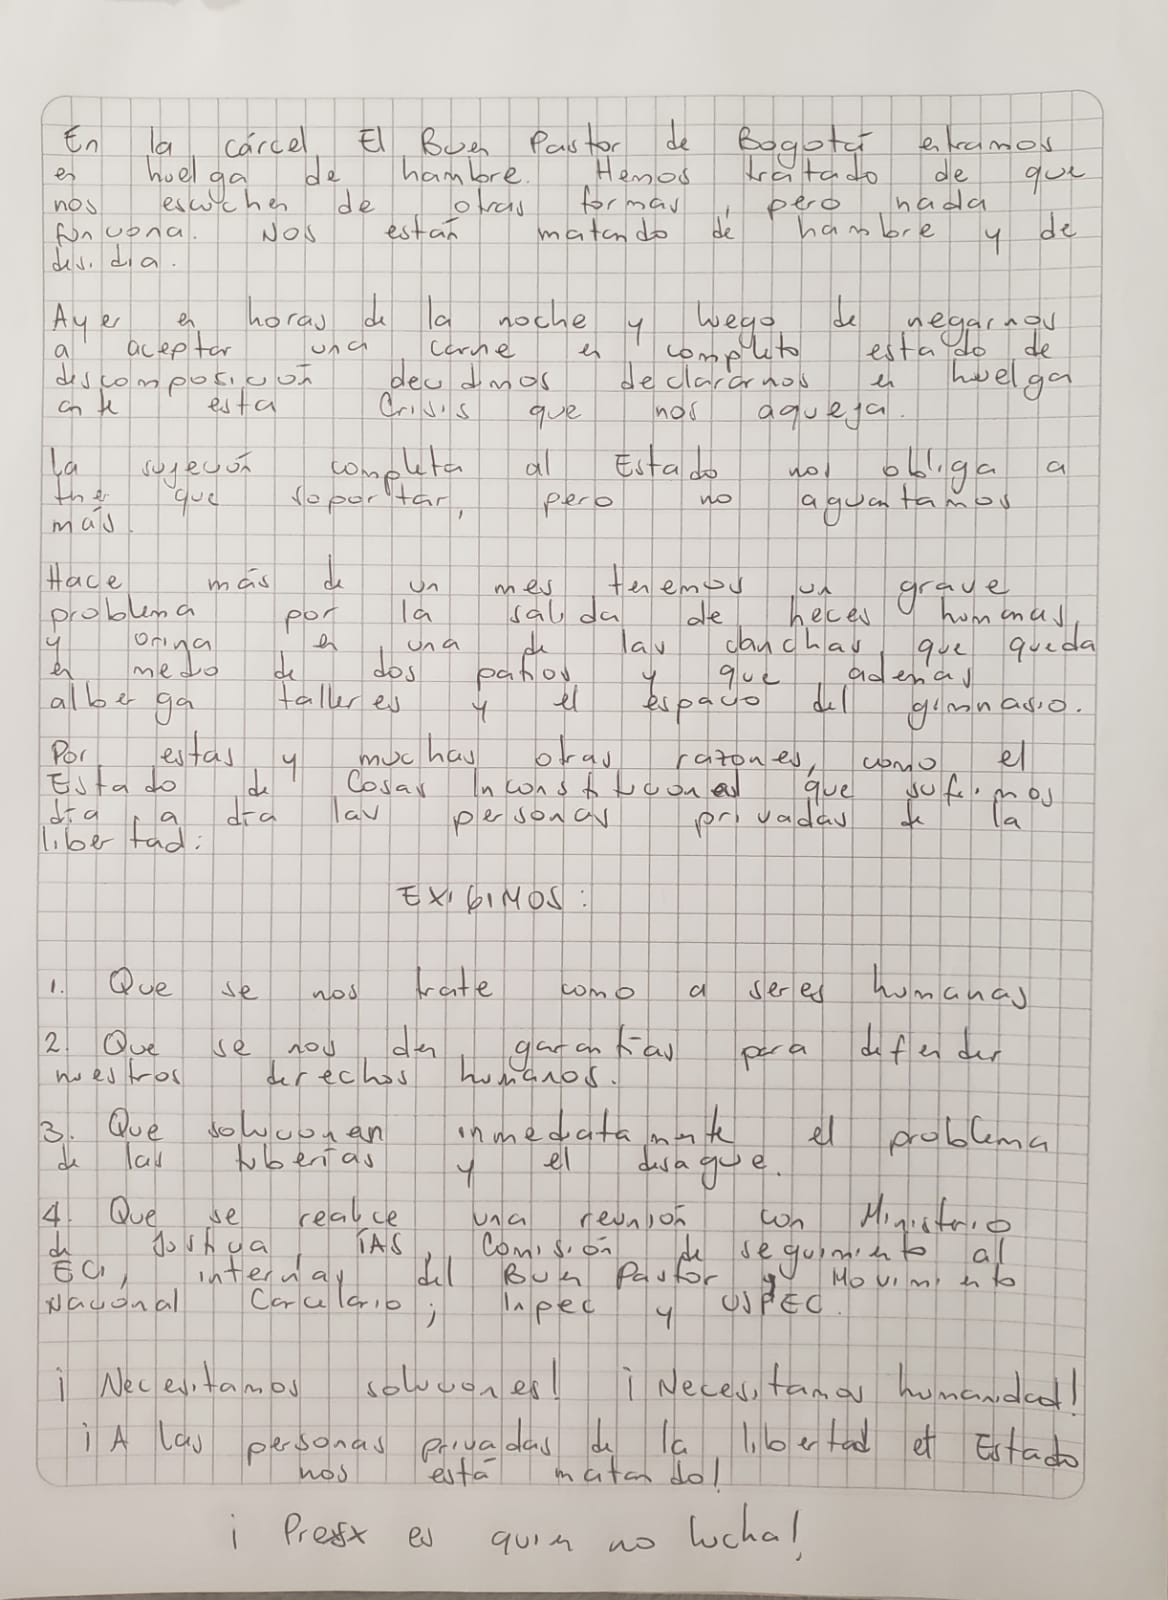 En la cárcel El Buen Pastor de Bogotá entramos
en huelga de hambre. Hemos tratado de que
nos escuchen de otras formas, pero nada
funciona. Nos están matando de hambre y de
desidia.
Ayer en horas de la noche y luego de negarnos
a aceptar una carne en completo estado de
descomposición decidimos declararnos en huelga
ante esta crisis que nos aqueja.
La sujeción completa al Estado nos obliga a
tener que soportar, pero no aguantamos
más.
Hace más de un mes tenemos un grave
problema por la salida de heces humanas
y orina en una de las canchas, que queda
en medio de dos patios y que además
alberga talleres y el espacio del gimnasio.
Por estas y muchas otras razones, como el
Estado de Cosas Inconstitucional que sufrimos
día a día las personas privadas de la
libertad:
EXIGIMOS:
1. Que se nos trate como a seres humanas
2. Que se nos den garantías para defender
nuestros derechos humanos.
3. Que solucionen inmediatamente el problema
de las tuberías y el desague.
4. Que se realice una reunión con Ministerio
de Justicia, IAS, Comisión de seguimiento al
ECI, internas del Buen Pastor y Movimiento
Nacional Carcelario; Inpec y USPEC.
¡Necesitamos soluciones! ¡Necesitamos humanidad!
¡A las personas privadas de la libertad el Estado
nos está matando!
¡Presx es quien no lucha!